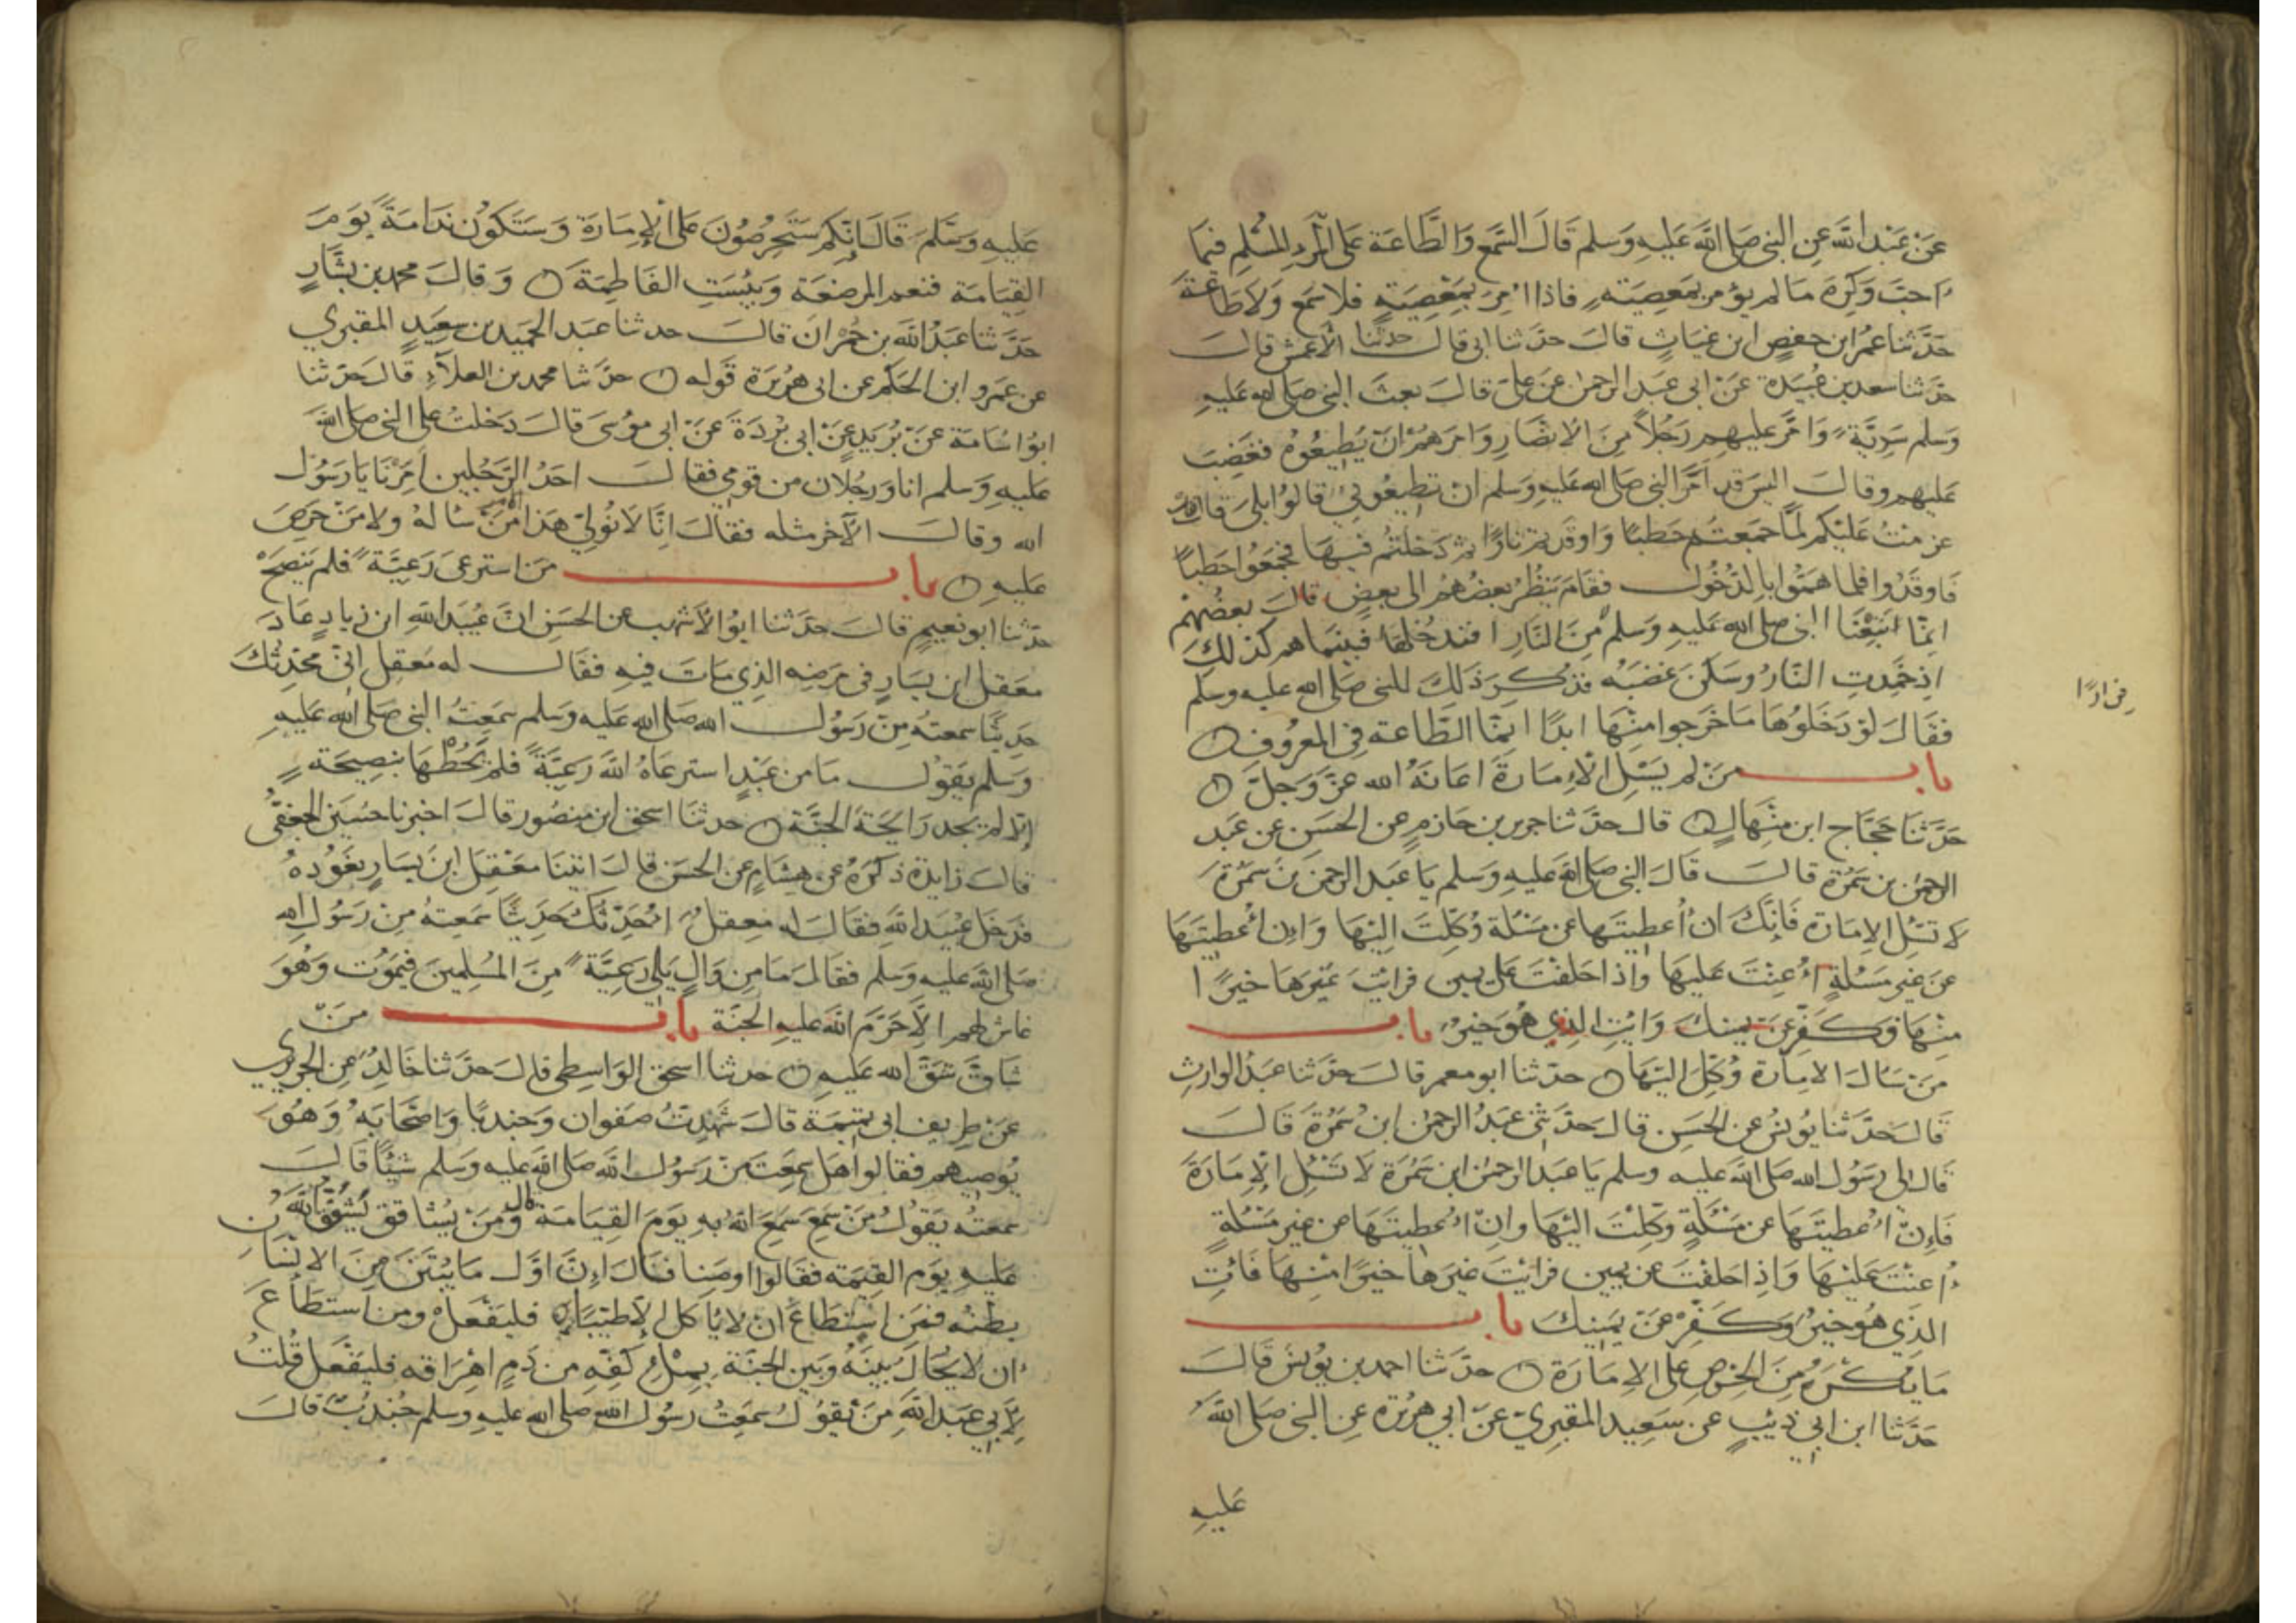 عَنْ عَبْدِ اللَّهِ عَنِ النبي صَلى اللَّه عَليهِ وَسَلم قَالَ السَّمع وَالطَّاعَة عَلى المَرْءِ المُسْلِم فيمَا
احبّ وَكرِهَ مَا لم يؤمر بمَعصِيَتهٍ فاذا امِرَ بمَعْصِيَتهٍ فلا سَمع وَلا طَاعَةَ
حَدَّثنا عمَرُ ابن حفصٍ ابن غيَاثٍ قالَ حدّثنا ابى قالَ حدثنا الأعمش قالَ
حدّثنا سعد بن عُبَيدة عَنْ ابى عبَد الرحمن عَن عَلى قالَ بعثَ النبي صَلى الله عَليهِ
وَسلم سَرِيَّة وَامّرَ عليهم رَجُلاً مِنَ الانصَارِ وَامرَهُمْ انْ يُطِيعُوهُ فغَضِبَ
عَليهم وقالَ اليسَ قد امَرَ النبي صَلى الله عَليهِ وَسلم ان تطيعُوني قالوُا بلىَ قالَ قد
عزمتُ عَليْكم لمَّا جمَعتُم حَطبًا وَاوقَدتم نارًا ثم دَخلتُم فيهَا فجَمَعُوا حَطبًا
فَاوقَدُوا فلما همَّوا بالدّخُول فقامَ يَنظُرُ بعضُهُمُ الى بعضٍ قالَ بعضُهُمْ
انمّا اتبَعْنَا النبي صلى الله عَليهِ وَسلمَ مِنَ النَارِ افندخُلهَا فبَيْنمَا هم كذلِكَ
اذ خمَدتِ النّارُ وسَكنَ غضَبُهُ فذكرَ ذلكَ للنبي صَلى الله عليه وسلم
فقَالَ لوْ دَخَلوُهَا مَا خَرجوا مِنْهَا ابدًا انِمّا الطَّاعة في المعرُوفِ
باب مَنْ لم يَسْئلِ الْإمَارةَ اعَانَهُ الله عَزَّ وَجلَّ
حَدَّثنَا حَجَّاج ابن مِنْهَالٍ قال حدّثنا جرير بن حازمٍ عن الحسَنِ عن عَبد
الرحمن بن سَمُرةَ قالَ قَالَ النبي صَلى اللَّه عَليهِ وَسلم يَا عبَد الرحمن بنَ سَمُرَةَ
لا تسْئلِ الاِمَارة فَإنّكَ انْ أُعطيتَها عن مَسْئلة وُكِّلتَ اليْهَا وَاِن اعُطيتَهَا
عن غير مَسئلةٍ اعُِنْتَ عَليهَا وَإذا حَلفتَ عَلى يمين فرايتَ غيرَهَا خيَرًا
منْهَا فكَفّرْ عَنْ يمينكَ وَائتِ الذِي هُوَ خيرُ باب
مَنْ سَالَ الاِمَارة وُكِّلَ اليْهَا حدّثنا ابو معمر قالَ حدّثنا عَبدُ الوَارثِ
قَالَ حَدَّثنا يوُنسُ عن الحَسَنِ قالَ حدّثني عبَدُ الرحمن ابن سَمُرةَ قَالَ
قَالَ لى رَسُول الله صَلى اللَّه عليه وسلم يَا عبدَ الرحمن ابن سَمُرَة لا تَسْئلِ الإمَارَةَ
فَإِنّ اعُطيتَهَا عن مَسْئلةٍ وكِّلتَ اليْهَا وانِ اعُطيتَهَا من غير مَسْئلةٍ
اُعنْتَ عَليْهَا وَإذِا حَلفتَ عن يمينٍ فرايْتَ غيرَهَا خيَرًا مِنْهَا فَائتِ
الذِي هُوَ خيرُ وَكَفّرْ عَنْ يمَينكَ باب
مَا يكْرَهُ مِنَ الحِرْصِ عَلى الاِمَارَة حدّثنا احمد بن يوُنسَ قَالَ
حَدّثنا ابن ابي ذئبٍ عن سَعِيد المقبري عَن ابي هرَيْرَة عَنِ النبي صَلى اللَّه
عَليهِ
عَليهِ وَسَلمَ قَالَ إنّكم سَتحرصُونَ عَلى الْإمَارَة وَسَتكَوُن نَدامَةً يَوَمَ
القِيَامَة فنعم المرضعَة وَبئسَتِ الفَاطِمَة وَقالَ محمد بن بشّارٍ
حَدَّثنا عَبدُ اللَّه بن حُمْرانَ قالَ حدثنا عبَد الحمَيد بن سعِيدٍ المقبري
عن عمَرو ابن الحَكم عن ابى هُرَيرَة قوَله حدّثنا محمد بن العلآء قالَ حَدّثنا
ابوُ اسُامَة عَنْ برَيدٍ عَنْ ابى بُرْدَةَ عَنْ ابى موُسَى قَالَ دَخلتُ عَلى النبي صَلى اللَّه
عَليهِ وَسلم انا وَرجُلانِ من قومِي فقالَ احَدُ الرَّجُلينِ امِّرْنَا يَا رَسُولَ
الله وقالَ الآخر مثله فقالَ اِنَّا لا نُولى هَذا مَنْ سَالهُ ولا مَنْ حَرِصَ
عَليهِ باب مَن استرعىَ رَعيّةً فلم يَنصَحْ
حدّثنا ابو نعيمٍ قالَ حدَّثنا ابوُ الأشهب عن الحسَنِ انّ عُبيَد اللَّهِ ابن زيادٍ عَادَ
معَقلَ ابن يسَارٍ في مرَضه الذِي مَاتَ فيهِ فقَالَ له مَعقل اِنّى محَدّثكَ
حَديثًا سمعتهُ مِنْ رَسُول الله صَلى الله عَليه وسلم سَمِعتُ النبي صَلى الله عَليهِ
وَسَلم يقَوُل مَا من عَبْدٍ استرعَاهُ اللَّه رَعيّةً فلمْ يحُطْهَا بنصِيحَةٍ
إلّا لم يجدِ رَايحةَ الجنّة حدثنا اسحق ابن منصُور قالَ اخبرنا حُسَين الجعفيُّ
قالَ زَايدة ذكَرَهُ عن هِشَامٍ عن الحسَن قالَ اتيَنا مَعْقِلَ ابنَ يسَارٍ نعَوُدهُ
فدَخلَ عُبيَد اللَّهِ فقالَ لهُ معقلُ احُدّثكَ حَديثًا سَمعتهُ مِنْ رَسُولِ الله
صَلى اللَّه عليه وسلم فقالَ مَا مِن وَالٍ يَلى رَعيّةً مِنَ المُسْلمينَ فيمَوُت وَهُوَ
غاش لهم الاَّ حَرّمَ اللَّه عَليهِ الجَنّة باب مَنْ
شَاقّ شقّ الله عَليهِ حدثنا اسحق الوَاسِطي قالَ حَدّثنا خَالِدُ عَنِ الجرَيري
عَنْ طريفٍ ابى تميمَة قالَ شَهِدْتُ صَفوان وَجندبًا وَاصْحَابَهُ وَهُوَ
يوُصِيهم فقالوا هَل سمِعْتَ مِنْ رَسُول اللَّه صَلى اللَّه عليه وَسلم شيئًا قَالَ
سمعتهُ يَقوُلُ مَنْ سَمعَ سَمعَ اللَّهُ بهِ يَوَمَ القيَامَة قال وَمَنْ يُشاقق يُشقّقِ اللَّهُ
عَليهِ يوَمِ القيمَة فقَالوا اوصنِا فقالَ اِنَّ اوّلَ مَا ينُتنَ مِنَ الانسَانِ
بطْنهُ فمَن اسْتطاعَ ان لا يَأكل إلاّ طيّبًا فليَفعَلْ ومن استطَاعَ
ان لا يحُالَ بيَنَهُ وَبَين الجنّة بمِلْءِ كَفّهِ من دَمٍ اهْرَاقه فليَفْعَل قُلتُ
لِأبي عَبَد اللَّهِ مَنْ يقوُلُ سَمِعتُ رسُول اللَّهِ صَلى الله عليه وسلم جُندبُ قالَ